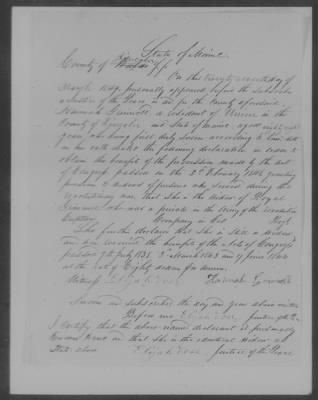 State of Maine
County of Lincoln SS
On this twenty seventh day of
March 1849, personally appeared before the Subscriber
a Justice of the Peace in and for the County aforesaid
Hannah, a resident of Union in the
County of Lincoln and State of Maine, aged
years, who being first duly sworn according to law, doth
on her oath make the following declaration in order to
obtain the benefit of the provision made by the act
of Congress passed on the 2d February 1848, granting
pensions to widows of persons who served during the
revolutionary war, that she is the widow of Royal
who was a private in the Army of the revolution
Captain Company in Col Regt
She further declares that She is Still a widow
and has received the benefits of the Acts of Congress
passed 7th July 1838, 3d March 1843 and 17 June 1844
at the rate of Eighty dollars per annum.
Witness Hannah
Sworn and subscribed the day and year above written
Before me Justice of the Peace
I certify that the above named declarant is personally
known to me and that she is the identical widow as
State above Justice of the Peace